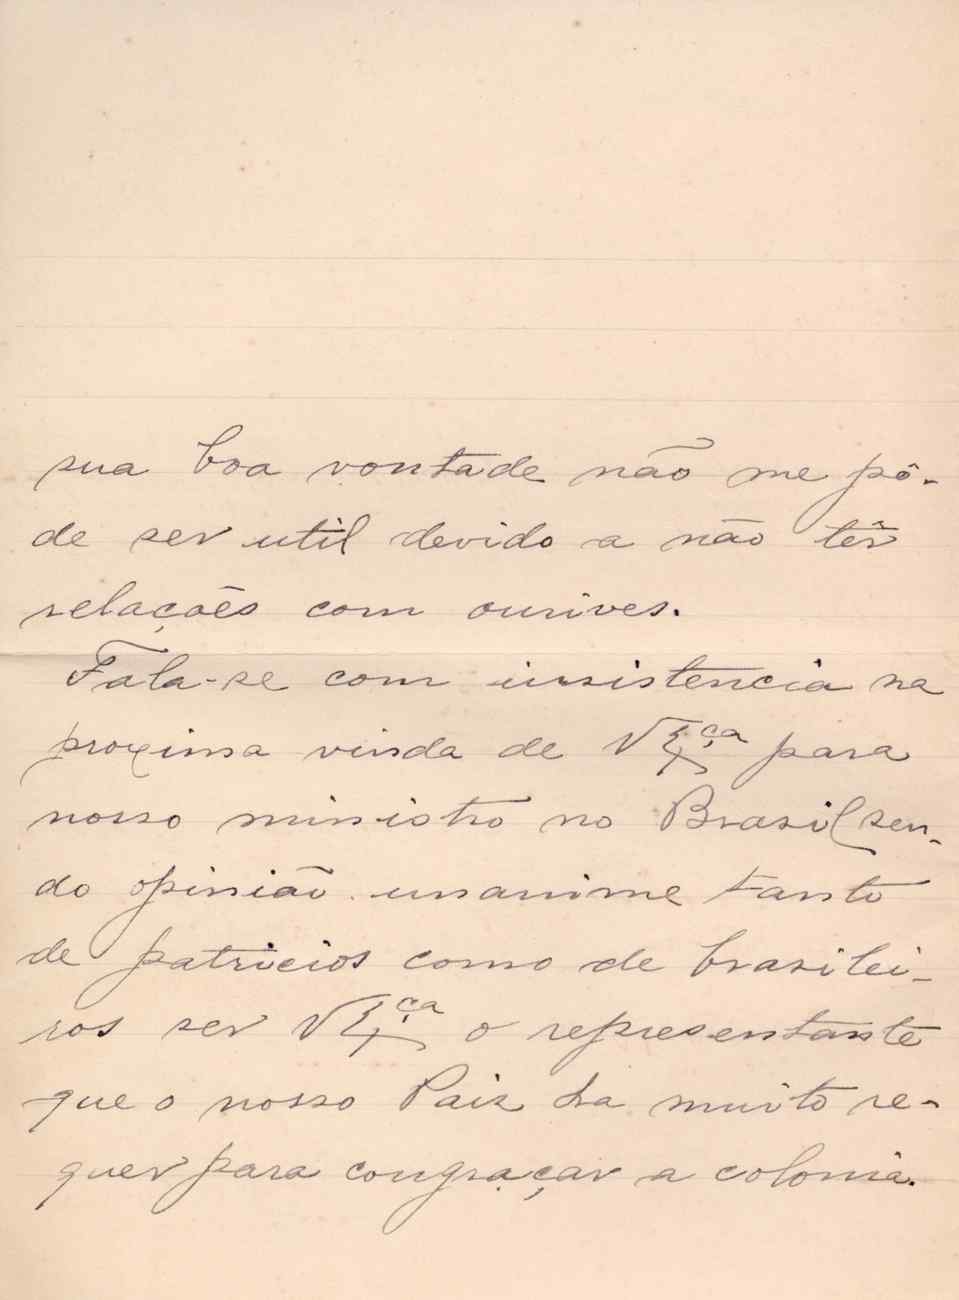 sua boa vontade não me pô-
de ser util devido a não têr
relações com ourives.
Fala-se com insistencia na
proxima vinda de V Exça para
nosso ministro no Brasil sen-
do opinião unanime tanto
de patricios como de brasilei-
ros ser V Exça o representante
que o nosso Paiz ha muito re-
quer para congraçar a colonia.